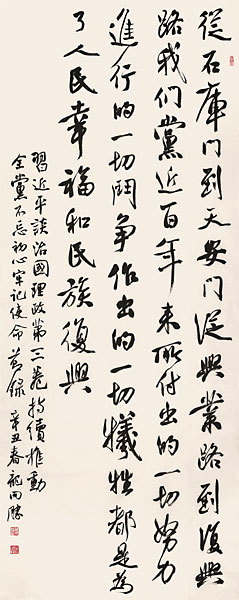 從石庫門到天安門從興業路到復興
路我们黨近百年来所付出的一切努力
進行的一切鬥争作出的一切犧牲都是為
了人民幸福和民族復興
習近平談治國理政第三卷持續推動
全黨不忘初心牢记使命 節録 辛丑春